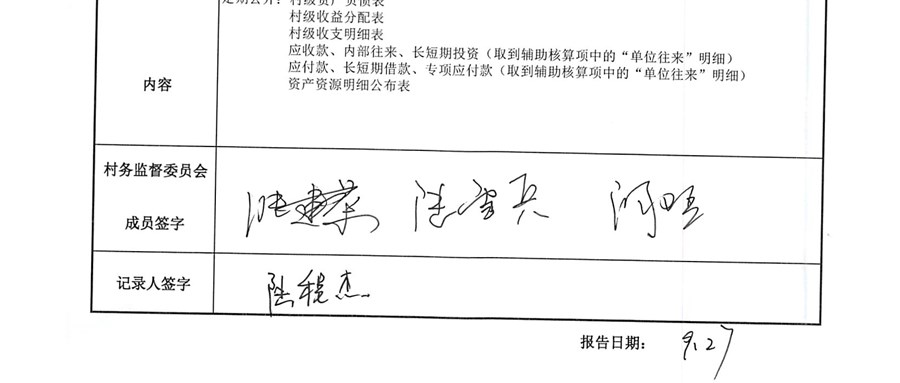 定期公开：村级资产负债表
村级收益分配表
村级收支明细表
应收款、内部往来、长短期投资（取到辅助核算项中的“单位往来”明细）
应付款、长短期借款、专项应付款（取到辅助核算项中的“单位往来”明细）
内容
资产资源明细公布表
村务监督委员会
成员签字
记录人签字
报告日期： 9.27